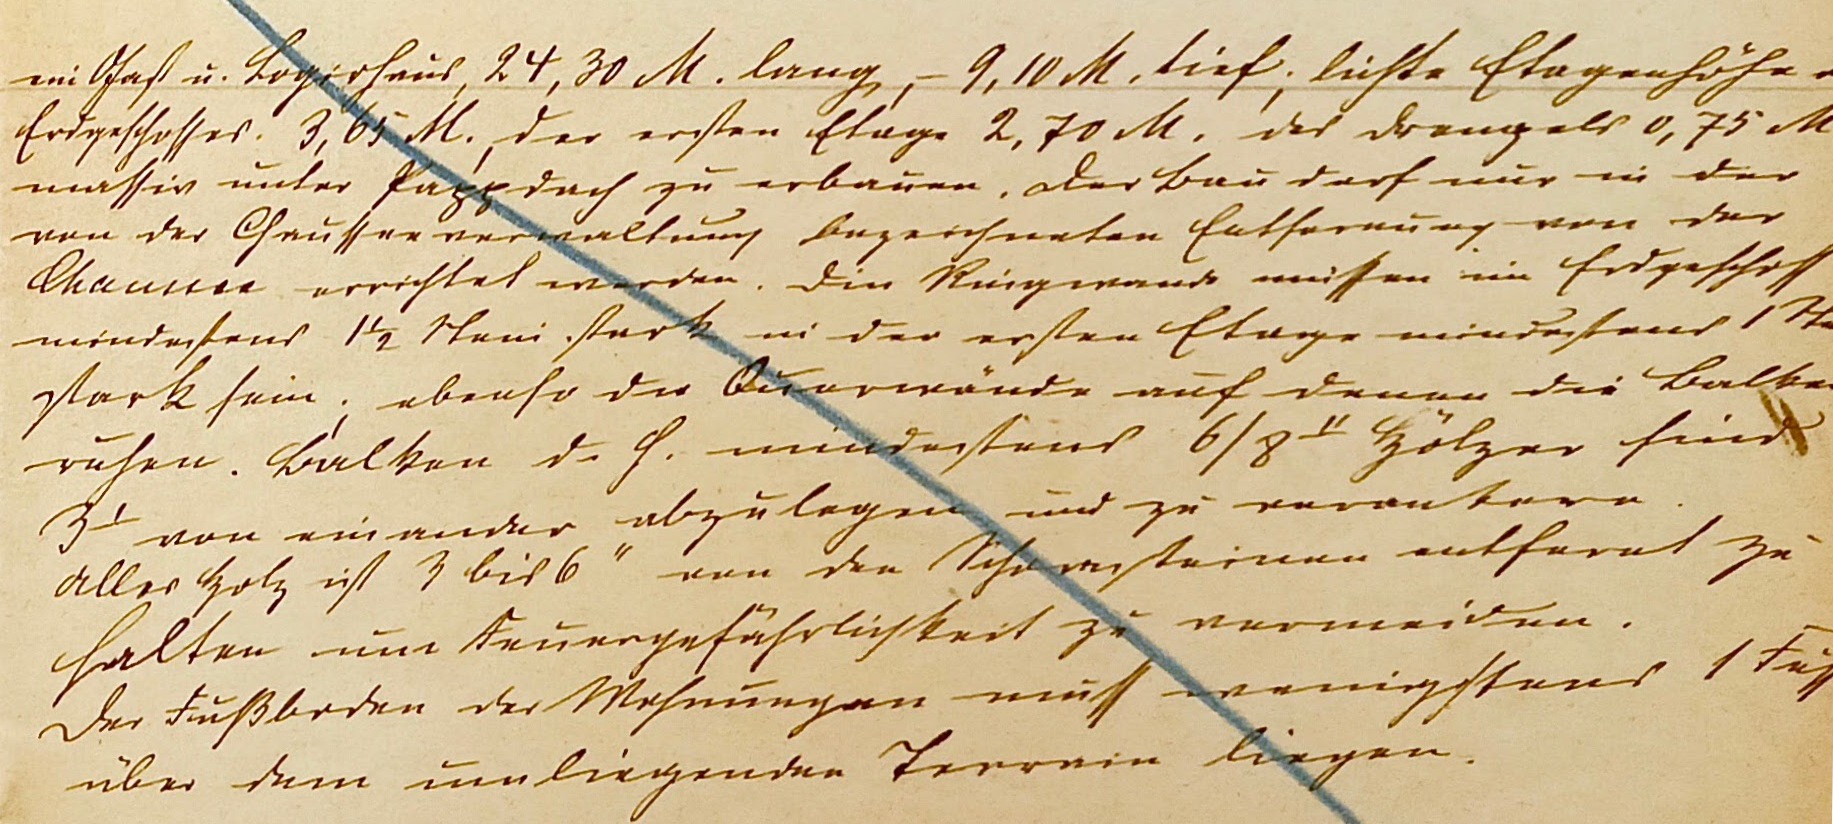 ein Gast u. Logirhaus, 24,30 M. lang, – 9,10 M. tief, lichte Etagenhöhe
Erdgeschosses. 3,65 M., der ersten Etage 2,70 M. des Drempels 0,75 M
massiv unter Pappdach zu erbauen. Der Bau darf nur in der
von der Chausseeverwaltung bezeichneten Entfernung von der
Chaussee errichtet werden. Die Ringwände müssen im Erdgeschoß
mindestens 1½ Stein stark in der ersten Etage mindestens 1 Ste
stark sein; ebenso die Querwände auf denen die Balken
ruhen. Balken d. h. mindestens 6/8" Hölzer sind
3' von einander abzulegen und zu verankern.
Alles Holz ist 3 bis 6" von den Schornsteinen entfernt zu
halten um Feuergefährlichkeit zu vermeiden.
Der Fußboden der Wohnungen muß wenigstens 1 Fuß
über dem umliegenden Terrain liegen.